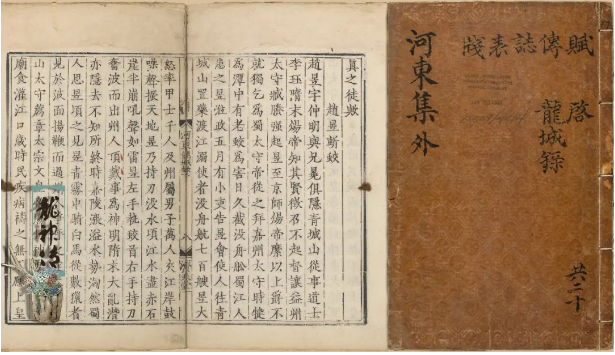 賦 傳 誌 表 牋
啓
龍城錄
河東集外
共二十
真之徒歟
趙昱斬蛟
趙昱字仲明與兄冕俱隱青城山從事道士
李珏隋末煬帝知其賢徵召不起督讓益州
太守臧賸強起昱至京師煬帝縻以上爵不
就獨乞為蜀太守帝從之拜嘉州太守時犍
為潭中有老蛟為害日久截沒舟船蜀江人
患之昱涖政五月有小吏告昱會使人往青
城山置藥渡江溺使者沒舟航七百艘昱大
怒率甲士千人及州屬男子萬人夾江岸鼓
噪聲振天地昱乃持刀沒水頃江水盡赤石
崖半崩吼聲如雷昱左手執蛟首右手持刀
奮波而出州人頂戴事為神明隋末大亂潛
亦隱去不知所終時嘉陵漲溢水勢洶然蜀
人思昱頃之見昱青霧中騎白馬從數獵者
見於波面揚鞭而過
山太守薦章太宗文
廟食灌江口歲時民疾病禱之無不應上皇